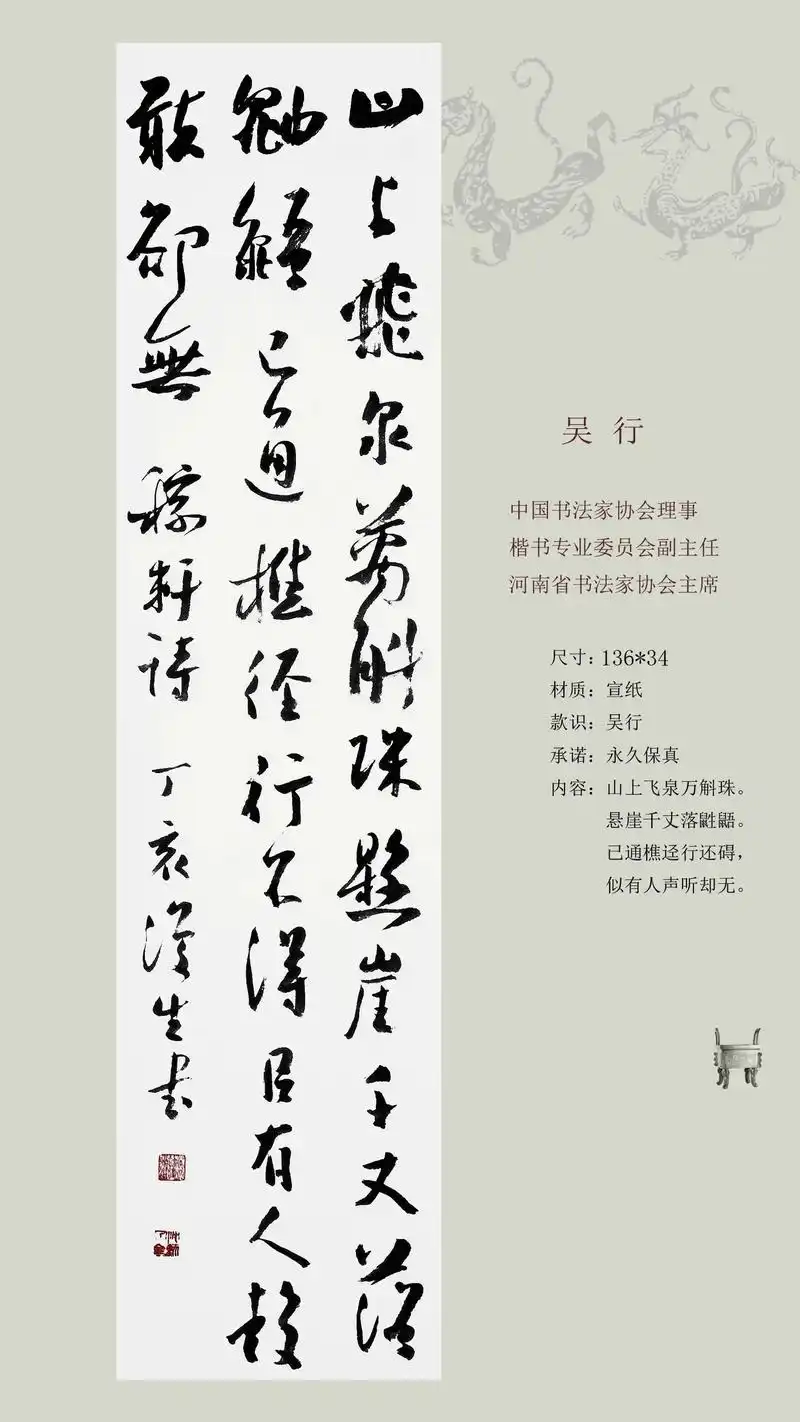 山上飛泉萬斛珠懸崖千丈落
鼯已通樵徑行不得有人
卻無 稼軒詩 丁亥生書
吴行
中国书法家协会理事
楷书专业委员会副主任
河南省书法家协会主席
尺寸：136*34
材质：宣纸
款识：吴行
承诺：永久保真
内容：山上飞泉万斛珠。
悬崖千丈落鼪鼯。
已通樵迳行还碍，
似有人声听却无。